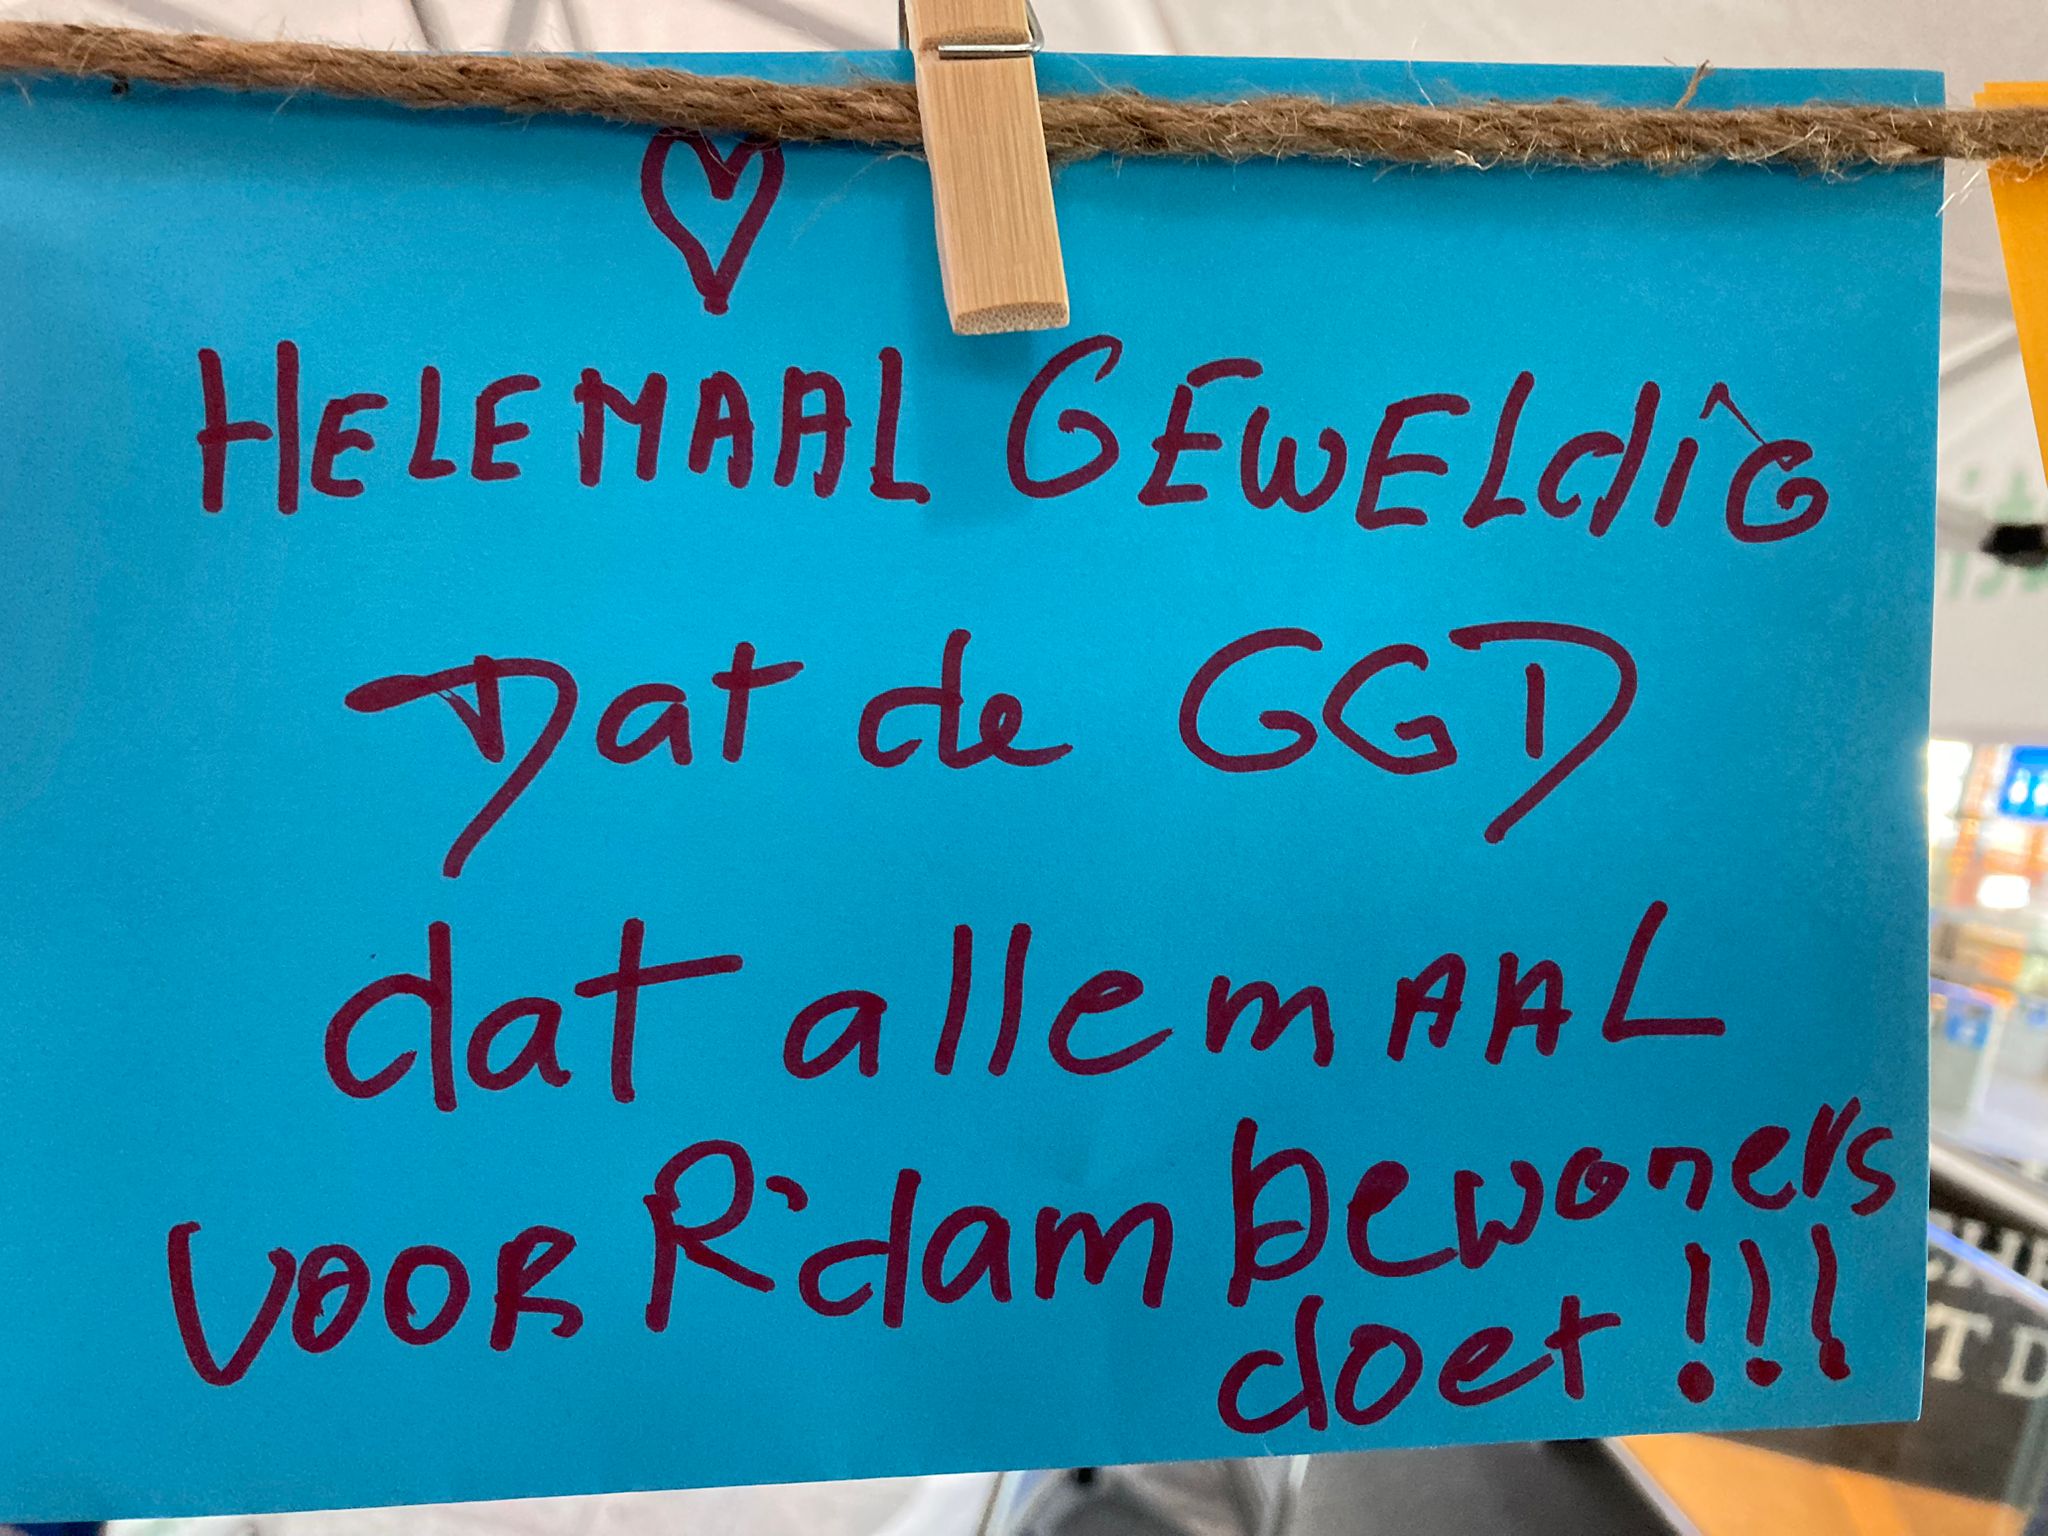 HELEMAAL GEWELdIG
Dat de GGD
dat allemAAL
VOOR R'dam bewoners
doet !!!
T D